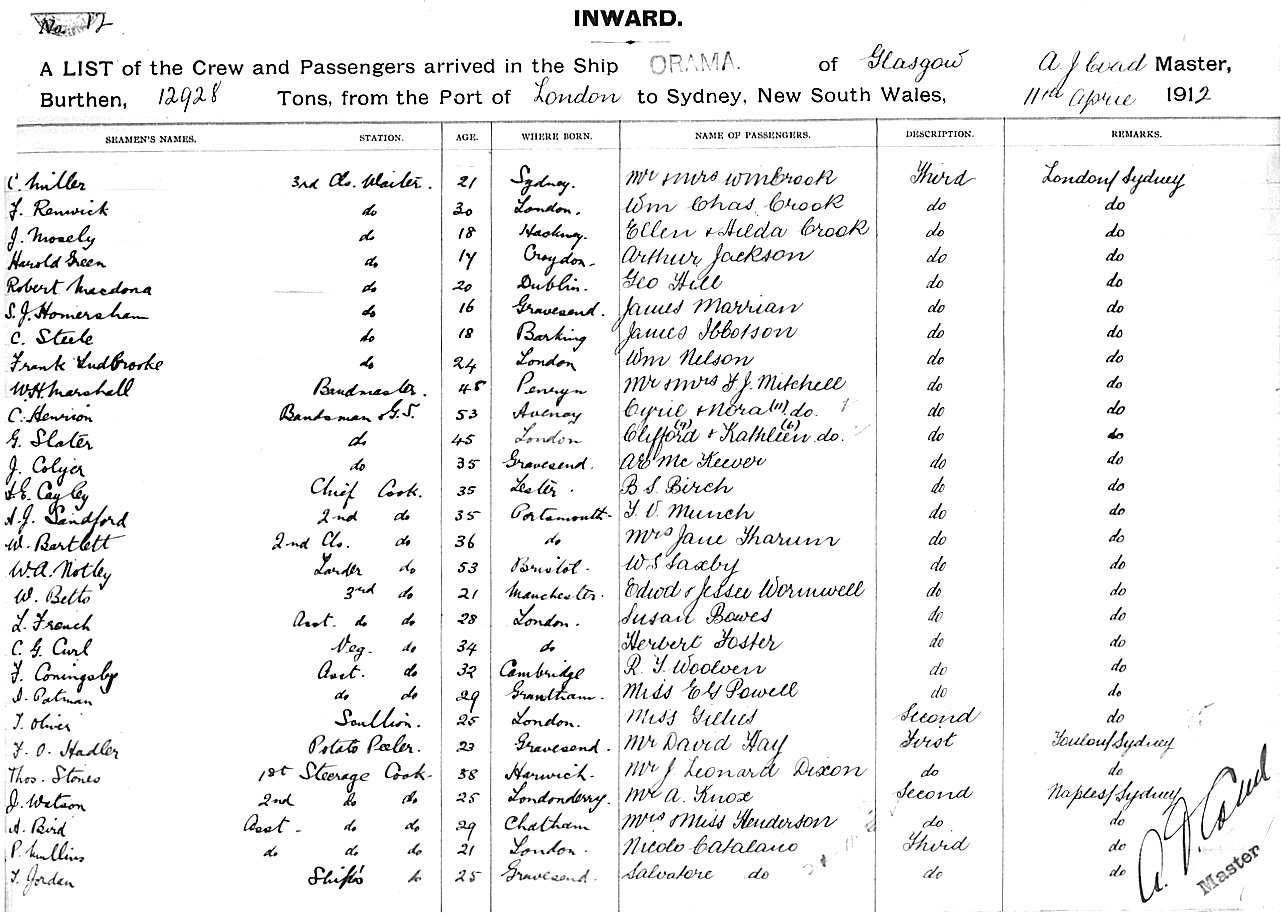 No. 12
INWARD.
A LIST of the Crew and Passengers arrived in the Ship ORAMA. of Glasgow A J Coad Master,
Burthen, 12928 Tons, from the Port of London to Sydney, New South Wales, 11th April 1912
SEAMEN'S NAMES. STATION. AGE. WHERE BORN. NAME OF PASSENGERS. DESCRIPTION. REMARKS.
C. Miller 3rd Cls. Waiter. 21 Sydney. Mr & Mrs Wm Crook Third London/Sydney
F. Renwick do 30 London. Wm Chas Crook do do
J. Mosely do 18 Hackney. Ellen & Hilda Crook do do
Harold Green do 17 Croydon. Arthur Jackson do do
Robert Macdona do 20 Dublin. Geo Hill do do
S. J. Homersham do 16 Gravesend. James Marrian do do
C. Steele do 18 Barking James Ibbotson do do
Frank Ludbrooke do 24 London Wm Nelson do do
W.H. Marshall Bandmaster. 45 Penryn Mr & Mrs F. J. Mitchell do do
C. Henrion Bandsman & G.S. 53 Avenay Cyril & Nora (11) do. do do
G. Slater do 45 London Clifford (9) & Kathleen (6) do. do do
J. Colyer do 35 Gravesend. McKeever do do
Cayley Chief Cook. 35 Lester. B S Birch do do
A. J. Sandford 2nd do 35 Portsmouth. Munch do do
W. Bartlett 2nd Cls. do 36 do Mrs Jane Tharum do do
W. A. Notley Larder do 53 Bristol. W S Saxby do do
W. Betts 3rd do 21 Manchester. Edwd & Jessie Wormwell do do
L. French Asst. do do 28 London. Susan Bowes do do
C. G. Curl Veg. do 34 do Herbert Foster do do
F. Coningsby Asst. do 32 Cambridge R. T. Woolven do do
D. Patman do do 29 Grantham. Miss E G Powell do do
T. Oliver Scullion. 25 London. Miss Gillies Second do
F. O. Hadler Potato Peeler. 23 Gravesend. Mr David Hay First Toulon/Sydney
Thos. Stones 1st Steerage Cook. 38 Harwich. Mr J. Leonard Dixon do do
J. Watson 2nd do do 25 Londonderry. Mr A. Knox Second Naples/Sydney
A. Bird Asst. do do 29 Chatham Mrs & Miss Henderson do do
P. Mullins do do do 21 London. Nicolo Catalano Third do
T. Jordan Ship's do 25 Gravesend. Salvatore do do do
Master